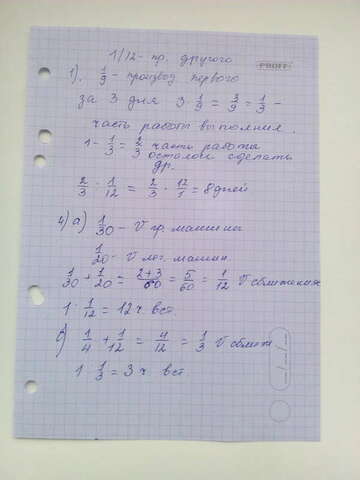 1/12 - пр. другого
PROFF
1). 1/9 - производ первого
за 3 дня 3 · 1/9 = 3/9 = 1/3 -
часть работы выполнил.
1 - 1/3 = 2/3 часть работы
осталось сделать
др.
2/3 : 1/12 = 2/3 · 12/1 = 8 дней
4) а) 1/30 - V гр. машины
1/20 - V лег. машин.
1/30 + 1/20 = 2+3/60 = 5/60 = 1/12 V сближения
1 : 1/12 = 12 ч. вст.
б) 1/4 + 1/12 = 4/12 = 1/3 V сближ
1 : 1/3 = 3 ч вст